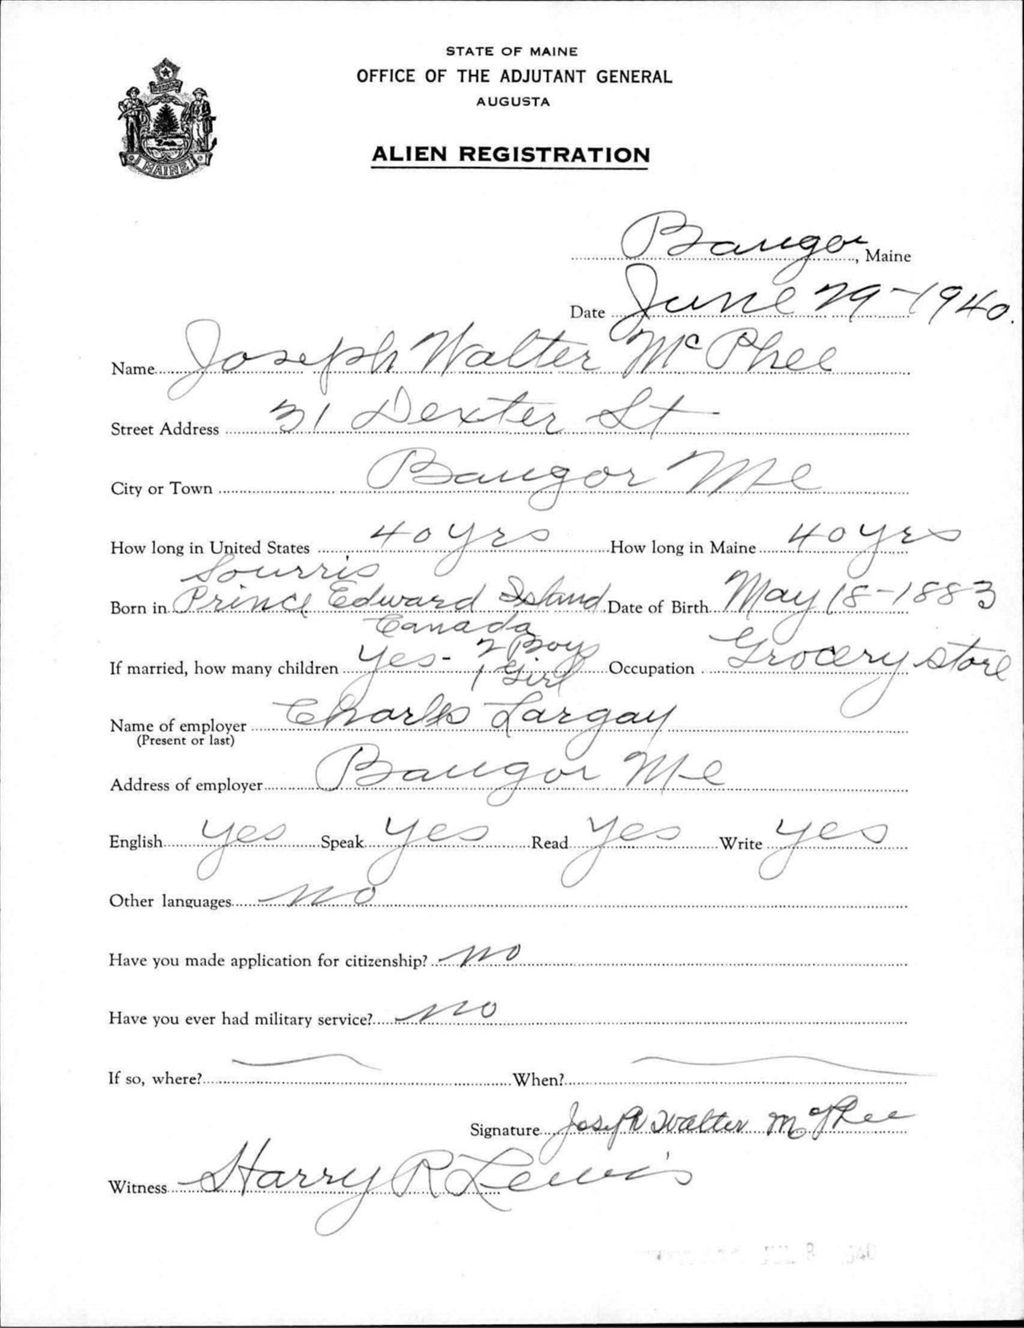 STATE OF MAINE
OFFICE OF THE ADJUTANT GENERAL
AUGUSTA
MAINE
ALIEN REGISTRATION
Bangor, Maine
Date June 29-1940.
Name Joseph Walter McPhee
Street Address 31 Dexter St
City or Town Bangor Me
How long in United States 40 yrs How long in Maine 40 yrs
Sourris
Born in Prince Edward Island Date of Birth May 18-1883
Canada
If married, how many children Yes - 2 Boys 1 Girl Occupation Grocery store
Name of employer Charles Largay
(Present or last)
Address of employer Bangor Me
English yes Speak yes Read yes Write yes
Other languages no
Have you made application for citizenship? no
Have you ever had military service? no
If so, where? When?
Signature Joseph Walter McPhee
Witness Harry R Lewis